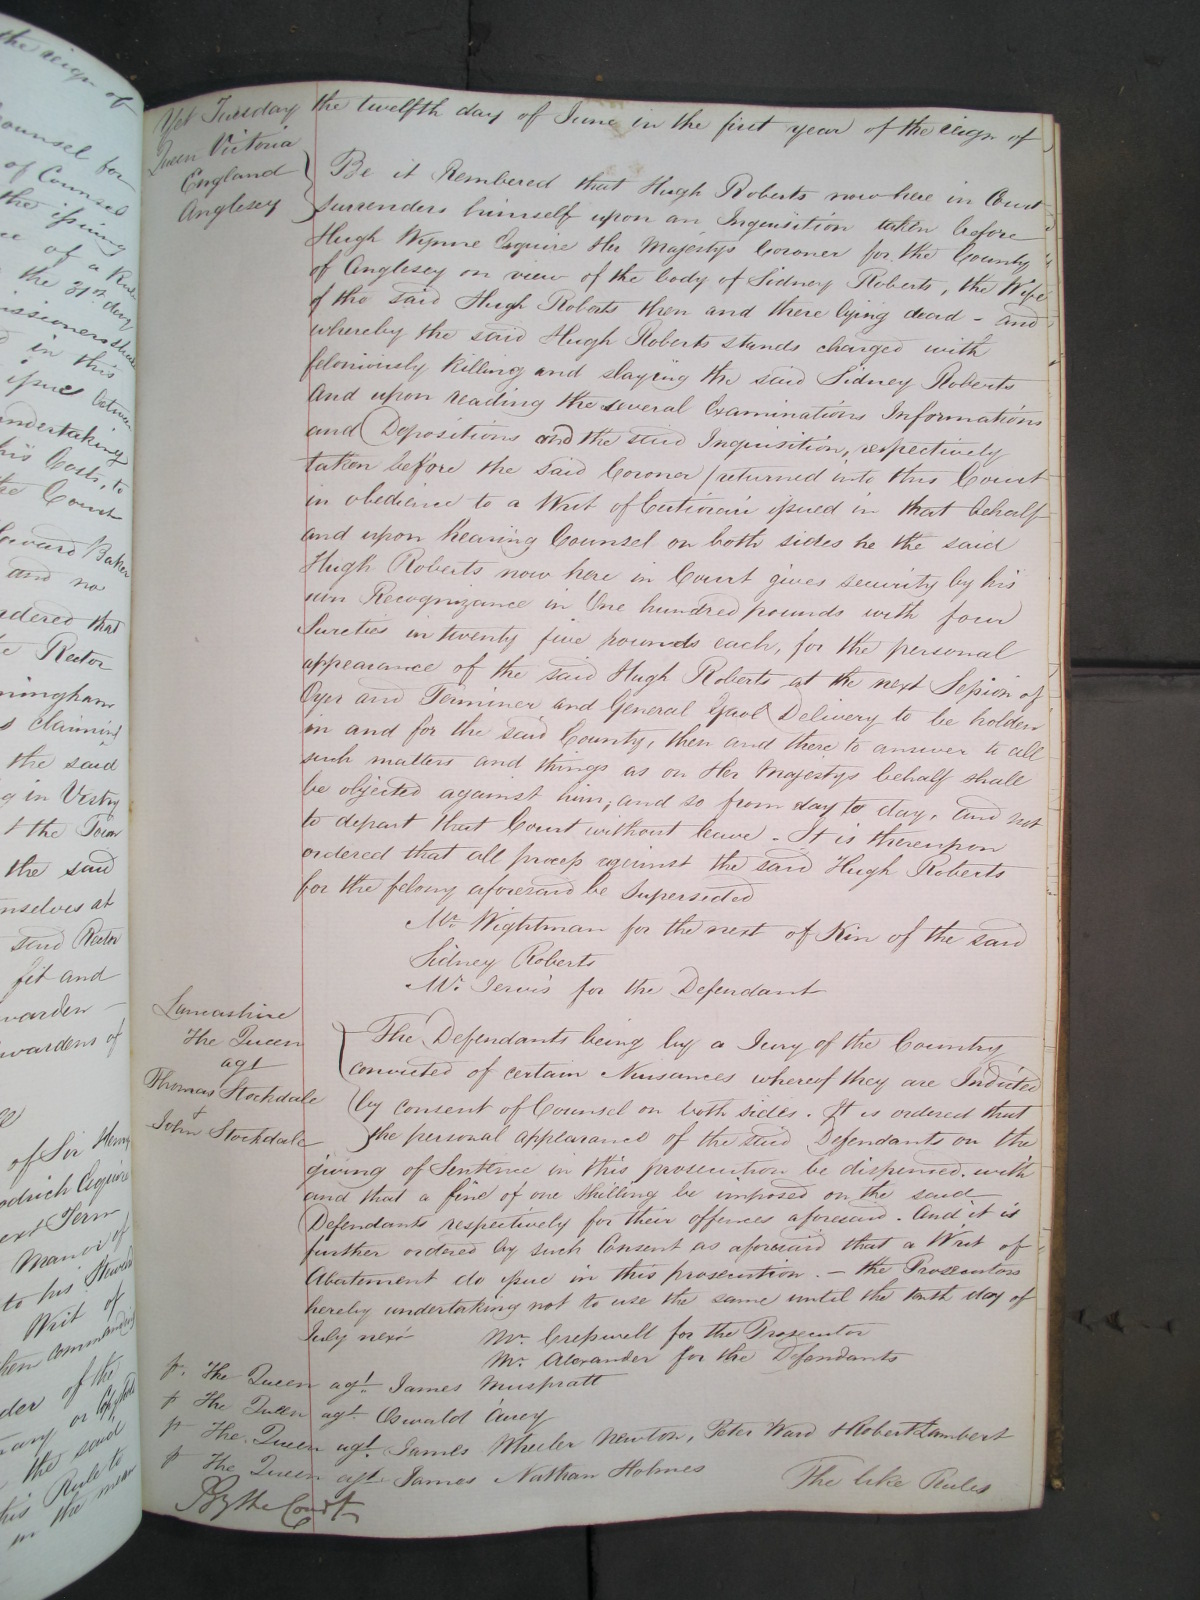 Yet Tuesday the twelfth day of June in the first year of the reign of
Queen Victoria
England
Anglesey
Be it Rembered that Hugh Roberts now here in Court
surrenders himself upon an Inquisition taken before
Hugh Wynne Esquire Her Majestys Coroner for the County
of Anglesey on view of the body of Sidney Roberts, the Wife
of the said Hugh Roberts then and there lying dead - and
whereby the said Hugh Roberts stands charged with
feloniously killing and slaying the said Sidney Roberts
And upon reading the several Examinations Informations
and Depositions and the said Inquisition, respectively
taken before the said Coroner returned into this Court
in obedience to a Writ of Certiorari issued in that behalf
and upon hearing Counsel on both sides he the said
Hugh Roberts now here in Court gives security by his
own Recognizance in One hundred pounds with four
Sureties in twenty five pounds each, for the personal
appearance of the said Hugh Roberts at the next Session of
Oyer and Terminer and General Gaol Delivery to be holden
in and for the said County, then and there to answer to all
such matters and things as on Her Majestys behalf shall
be objected against him, and so from day to day, and not
to depart that Court without leave - It is thereupon
ordered that all process against the said Hugh Roberts
for the felony aforesaid be Superseded
Mr. Wightman for the next of Kin of the said
Sidney Roberts
Mr. Jervis for the Defendant
Lancashire
The Queen
agt
Thomas Stockdale
+
John Stockdale
The Defendants being by a Jury of the Country
convicted of certain Nuisances whereof they are Indicted
by consent of Counsel on both sides. It is ordered that
the personal appearance of the said Defendants on the
giving of Sentence in this prosecution be dispensed with
and that a fine of one Shilling be imposed on the said
Defendants respectively for their offences aforesaid. And it is
further ordered by such Consent as aforesaid that a Writ of
Abatement do issue in this prosecution. - the Prosecutors
hereby undertaking not to use the same until the tenth day of
July next
Mr. Cresswell for the Prosecutor
Mr. Alexander for the Defendants
p. The Queen agt. James Muspratt
p The Queen agt. Oswald Carey
p The Queen agt. James Wheeler Newton, Peter Ward & Robert Lambert
p The Queen agt. James Nathan Holmes
The like Rules
By the Court
the reign of
Counsel for
of Counsel
the issuing
of a Rule
the 31st day
in this
issue between
undertaking
his Costs, to
the Court
Edward Baker
and no
ordered that
Rector
claiming
the said
in Vestry
the said
said Rector
fit and
wardens of
of Sir Henry
Esquire
next Term
Manor of
to his Steward
Writ of
commanding
of the
the said
this Rule to
in the mean